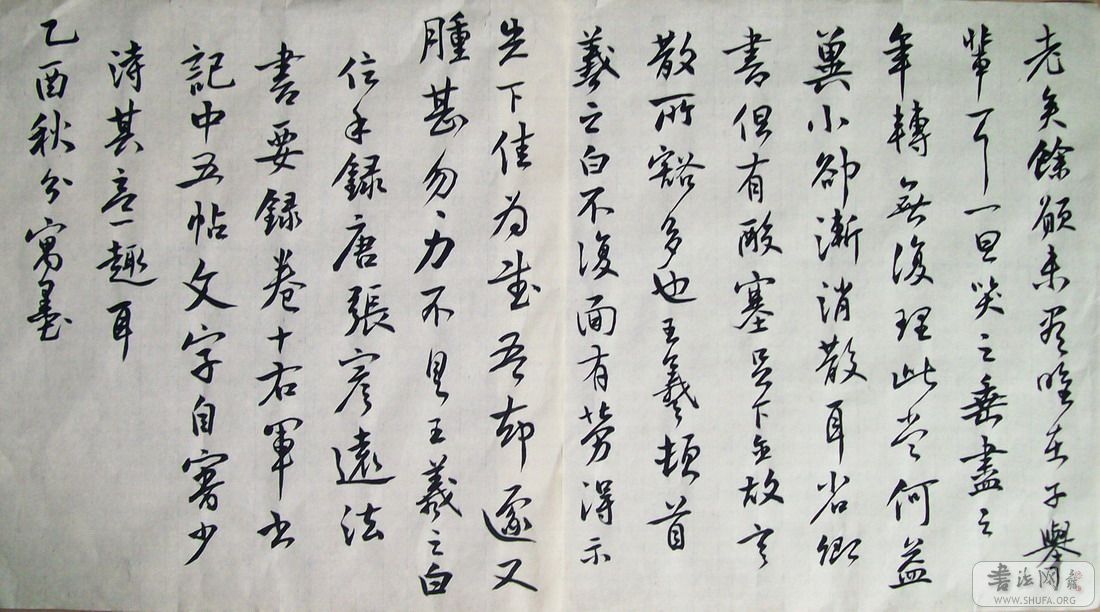 老矣餘願未盡唯在子舉
輩耳一旦哭之垂盡之
年轉無復理此當何益
冀小卻漸消散耳省卿
書但有酸塞足下念故言
散所豁多也王羲之頓首
羲之白不復面有勞得示
足下佳為慰吾却遂又
腫甚勿力不具王羲之白
信手録唐張彦遠法
書要録卷十右軍書
記中五帖文字自審少
其意趣耳
乙酉秋分寓墨
書法网
WWW.SHUFA.ORG